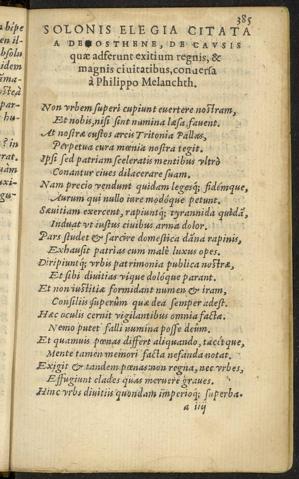 385
SOLONIS ELEGIA CITATA
A DEMOSTHENE, DE CAVSIS
quæ adferunt exitium regnis, &
magnis ciuitatibus, conuersa
à Philippo Melanchth.
Non vrbem superi cupiunt euertere nostram,
Et nobis, nisi sint numina læsa, fauent.
At nostræ custos arcis Tritonia Pallas,
Perpetua cura mœnia nostra tegit.
Ipsi sed patriam sceleratis mentibus vltrò
Conantur ciues dilacerare suam.
Nam precio vendunt quidam legesq́; fidémque,
Aurum qui nullo iure modóque petunt.
Sæuitiam exercent, rapiuntq́; tyrannida quidã,
Induat vt iustus ciuibus arma dolor.
Pars studet & sarcire domestica dãna rapinis,
Exhausit patrias cum malè luxus opes.
Diripiuntq́; vrbis patrimonia publica nostræ,
Et sibi diuitias vique dolóque parant.
Et non iustitiæ formidant numen & iram,
Consiliis superûm quæ dea semper adest.
Hæc oculis cernit vigilantibus omnia facta.
Nemo putet falli numina posse deûm.
Et quamuis pœnas differt aliquando, tacétque,
Mente tamen memori facta nefanda notat.
Exigit & tandem pœnas: non regna, nec vrbes,
Effugiunt clades quas meruere graues.
Hinc vrbs diuitiis quondam imperioq́; superba.
a iiij